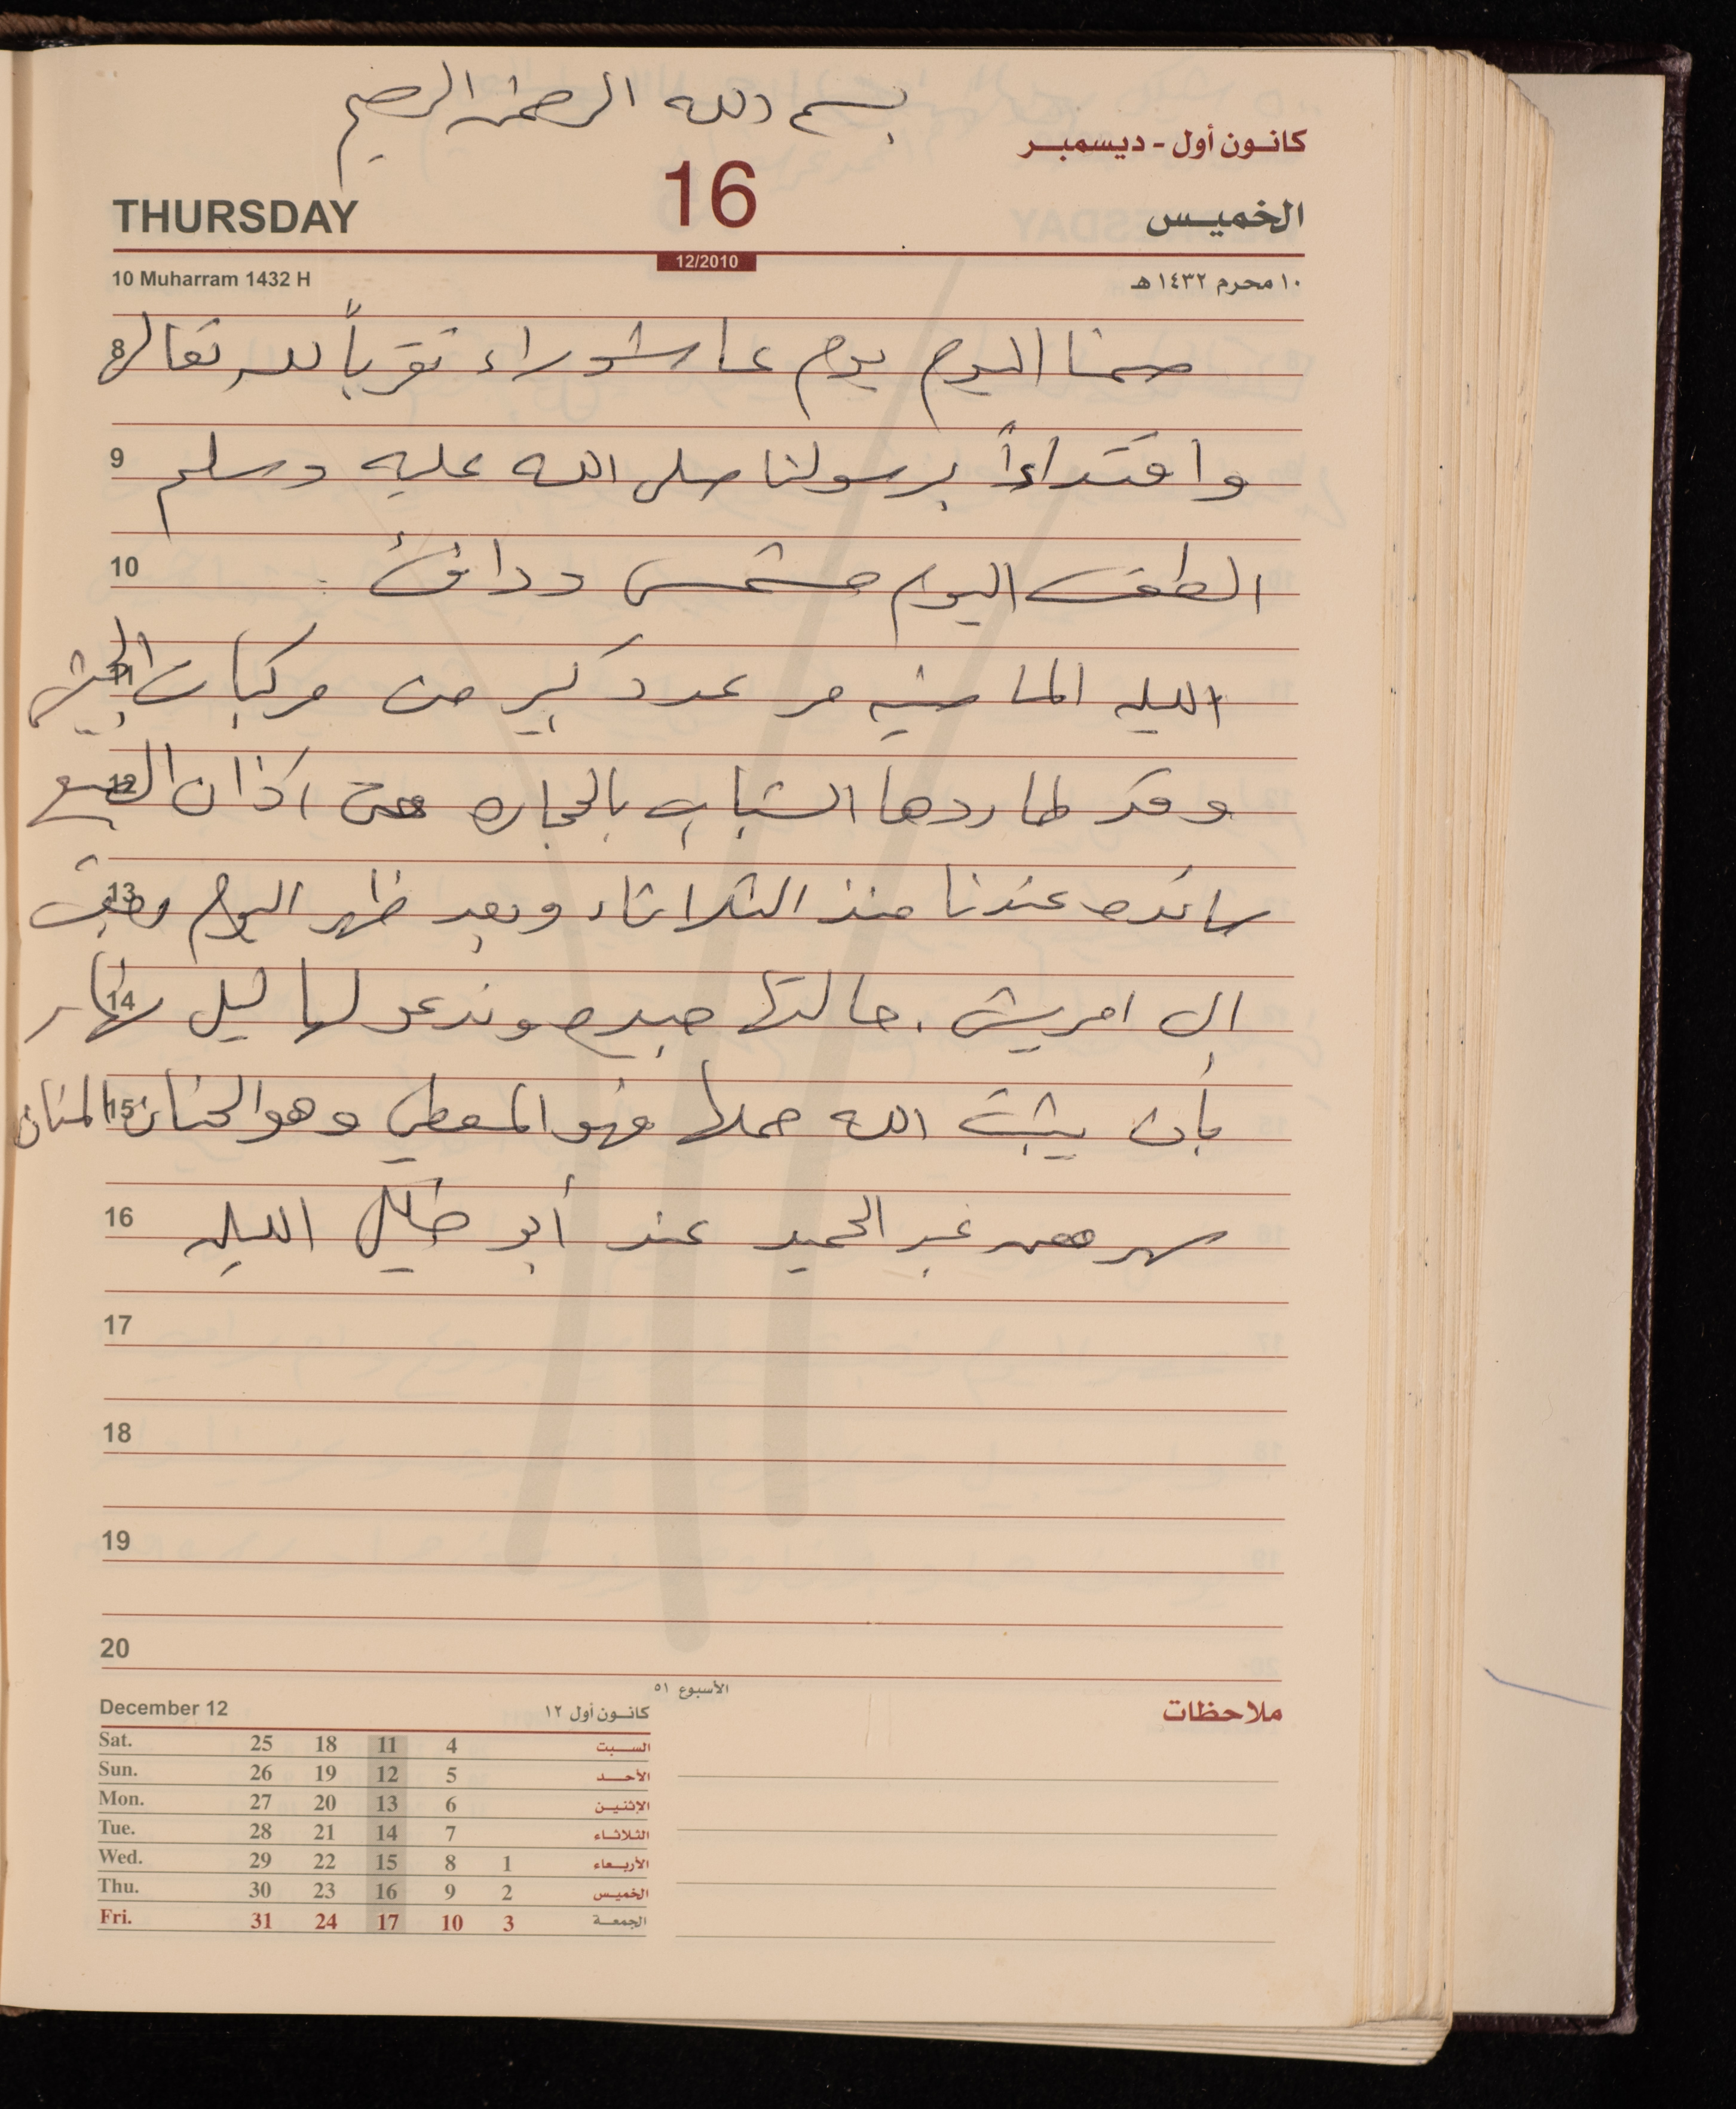 بسم الله الرحمن الرحيم
كانون أول - ديسمبر
THURSDAY 16 الخميس
12/2010
10 Muharram 1432 H ١٠ محرم ١٤٣٢ هـ
8 صمنا اليوم يوم عاشوراء تقرباً لله تعالى
9 واقتداءاً برسولنا صلى الله عليه وسلم
10 الطقس اليوم مشمس ودافئ
11 الليله الماضيه مر عدد كبير من مركبات الجيش
12 وقد طاردها الشباب بالحجاره حتى اذان الصبح
13 سائده عندنا منذ الثلاثاء وبعد ظهر اليوم
14 ال امريش . حالتها جيده وندعو لها ليل نهار
15 بأن يثبت الله حملها فهو المعطي وهو الحنان المنان
16 سهر عبد الحميد عند أبو الليله
17
18
19
20
الأسبوع ٥١
December 12 كانون أول ١٢
ملاحظات
Sat. 25 18 11 4 السبت
Sun. 26 19 12 5 الأحد
Mon. 27 20 13 6 الإثنين
Tue. 28 21 14 7 الثلاثاء
Wed. 29 22 15 8 1 الأربعاء
Thu. 30 23 16 9 2 الخميس
Fri. 31 24 17 10 3 الجمعة